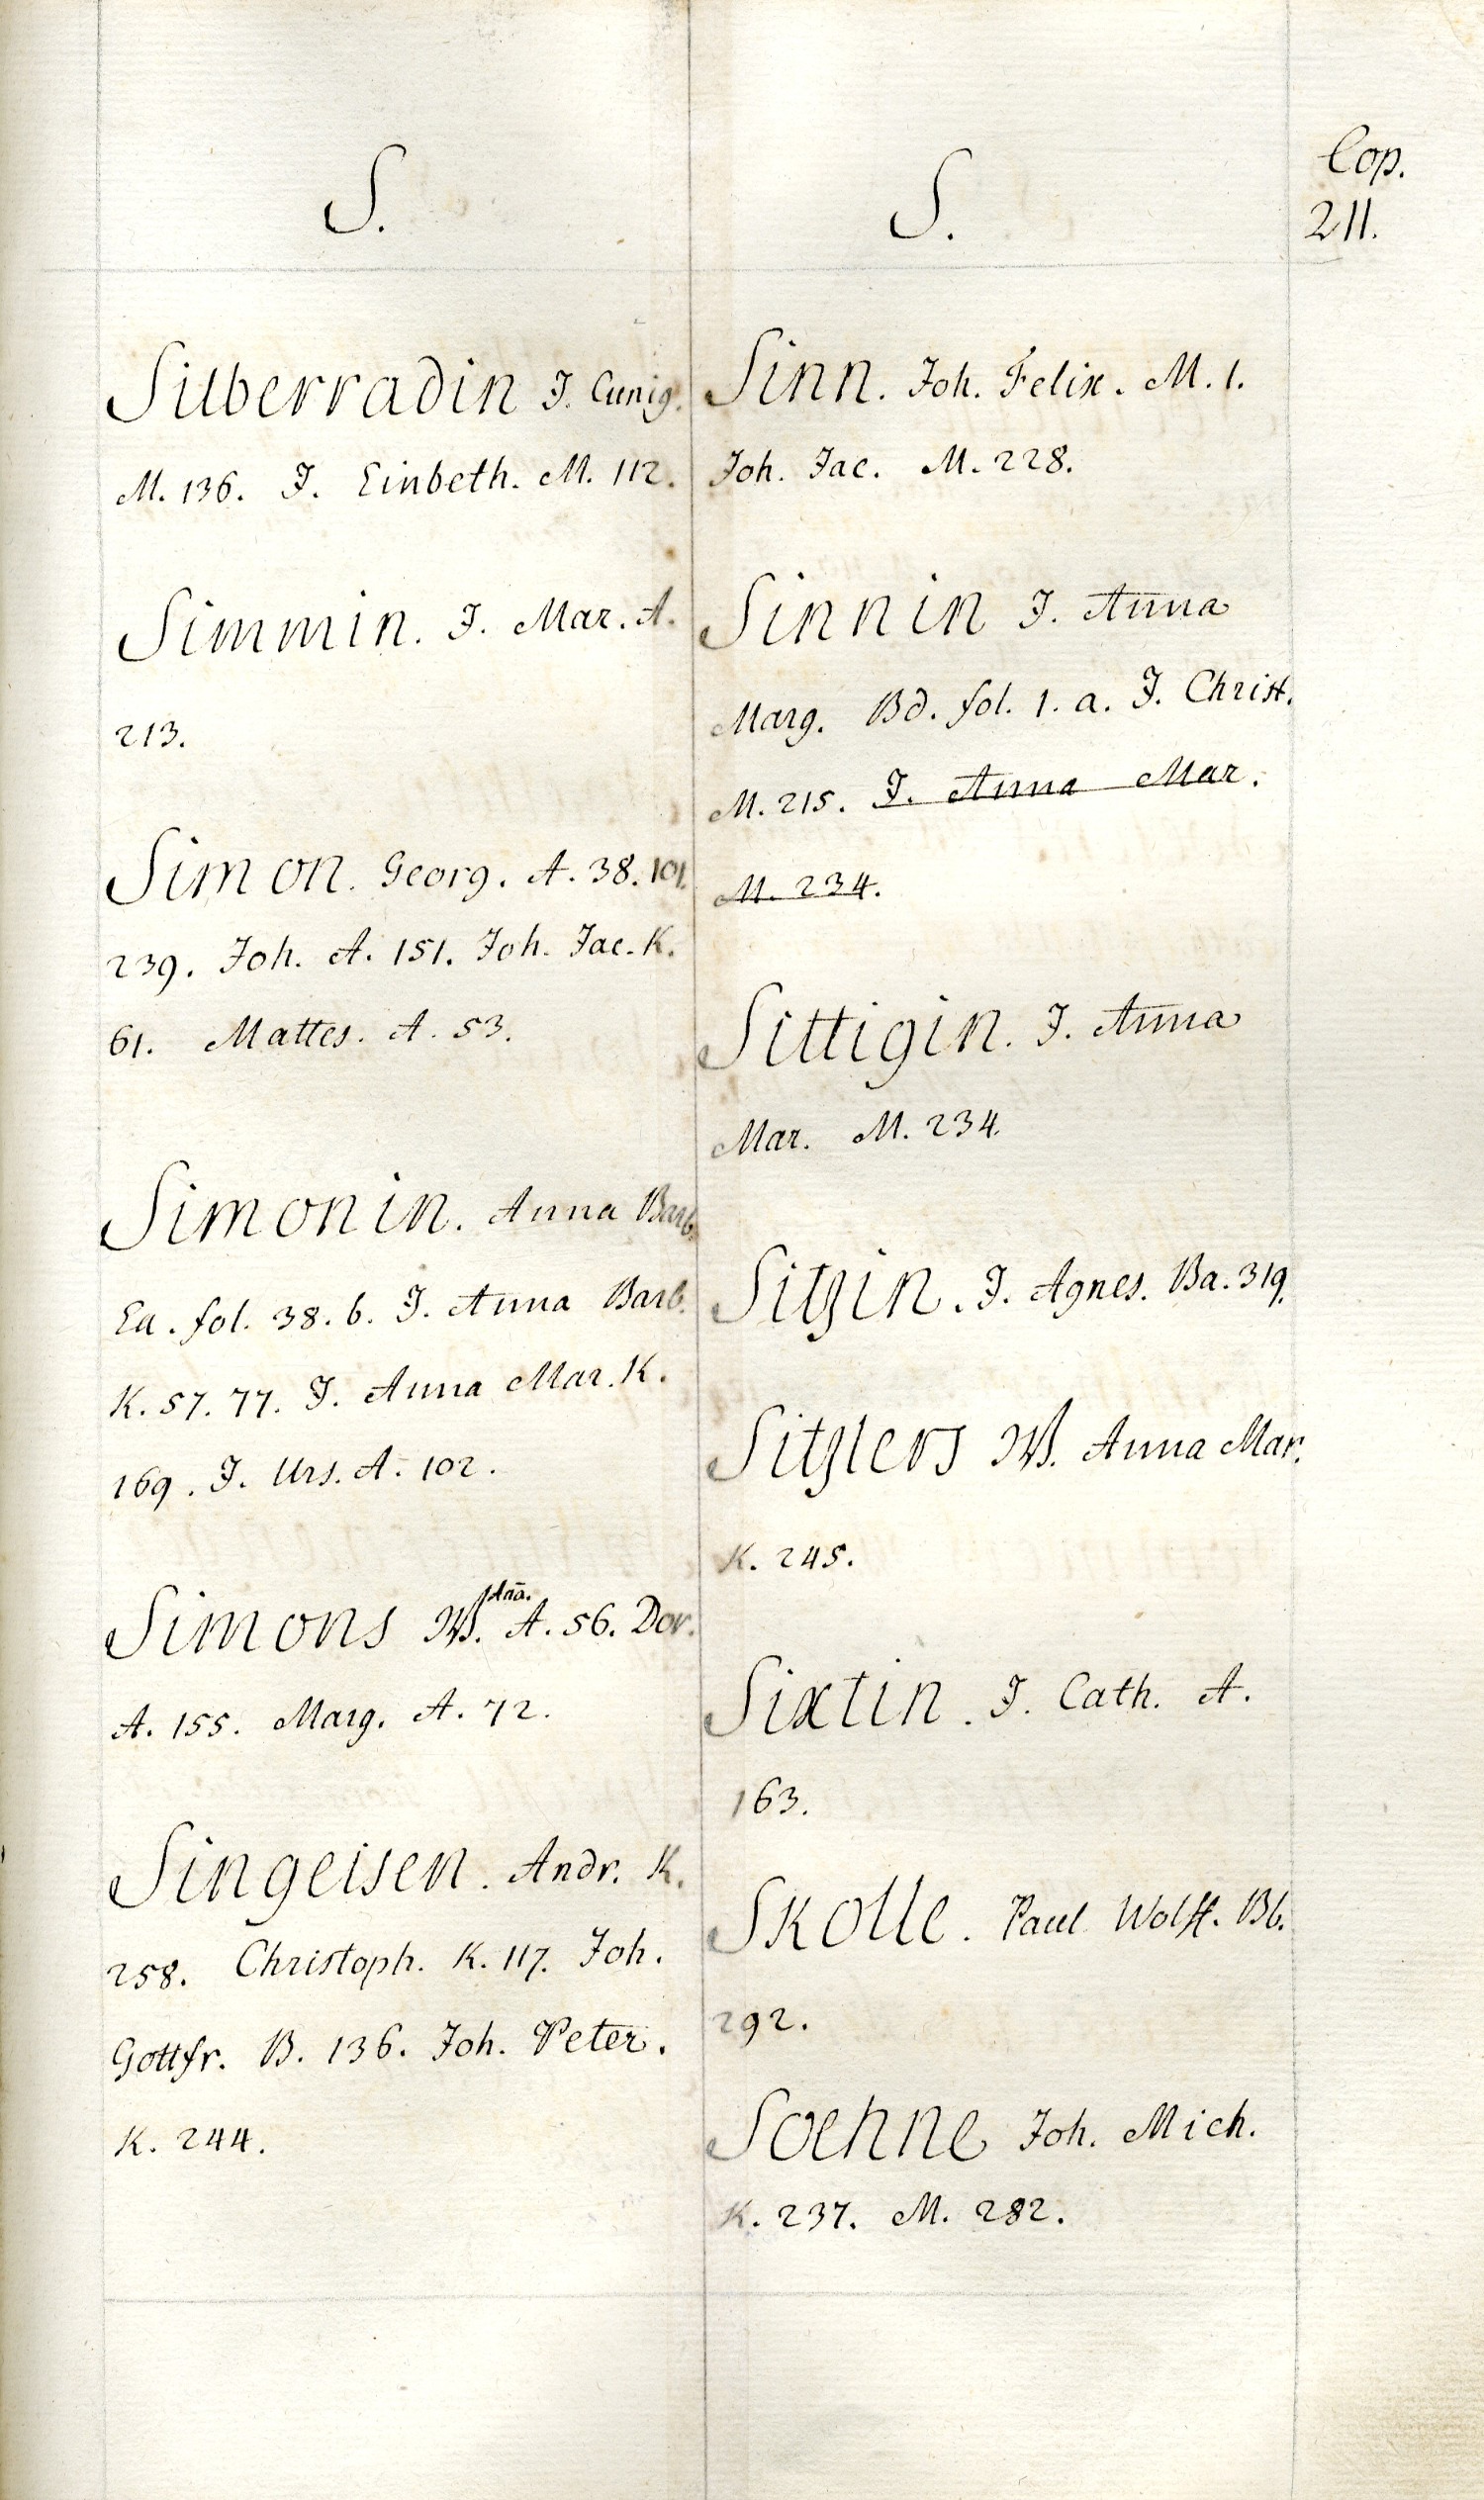 Cop.
211.
S.
Silberradin J. Cunig.
M. 136. J. Einbeth. M. 112.
Simmin. J. Mar. A.
213.
Simon. Georg. A. 38. 101.
239. Joh. A. 151. Joh. Jac. K.
61. Mattes. A. 53.
Simonin. Anna Barb.
Ea. fol. 38. b. J. Anna Barb.
K. 57. 77. J. Anna Mar. K.
169. J. Urs. A. 102.
Simons W. Aña. A. 56. Dor.
A. 155. Marg. A. 72.
Singeisen. Andr. K.
258. Christoph. K. 117. Joh.
Gottfr. B. 136. Joh. Peter.
K. 244.
S.
Sinn. Joh. Felix. M. 1.
Joh. Jac. M. 228.
Sinnin J. Anna
Marg. Bd. fol. 1. a. J. Christ.
M. 215. J. Anna Mar.
M. 234.
Sittigin. J. Anna
Mar. M. 234.
Sitzin. J. Agnes. Ba. 319.
Sitzlers W. Anna Mar.
K. 245.
Sixtin. J. Cath. A.
163.
Skolle. Paul Wolff. Bb.
292.
Soehne Joh. Mich.
K. 237. M. 282.